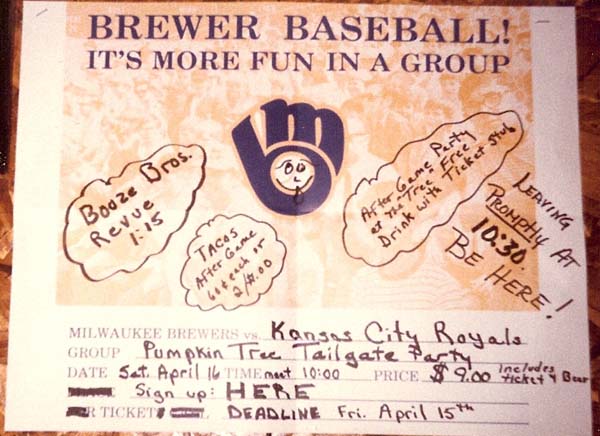 BREWER BASEBALL!
IT'S MORE FUN IN A GROUP
Booze Bros.
Revue
1:15
TACOS
After Game
60¢ each or
2/$1.00
After Game Party
at the "Tree" Free
Drink with Ticket Stub
LEAVING
PROMPTLY AT
10:30.
BE HERE!
MILWAUKEE BREWERS vs. Kansas City Royals
GROUP Pumpkin Tree Tailgate Party
DATE Sat. April 16 TIME meet 10:00 PRICE $9.00 includes ticket & Beer
Sign up: HERE
R TICKET DEADLINE Fri. April 15th